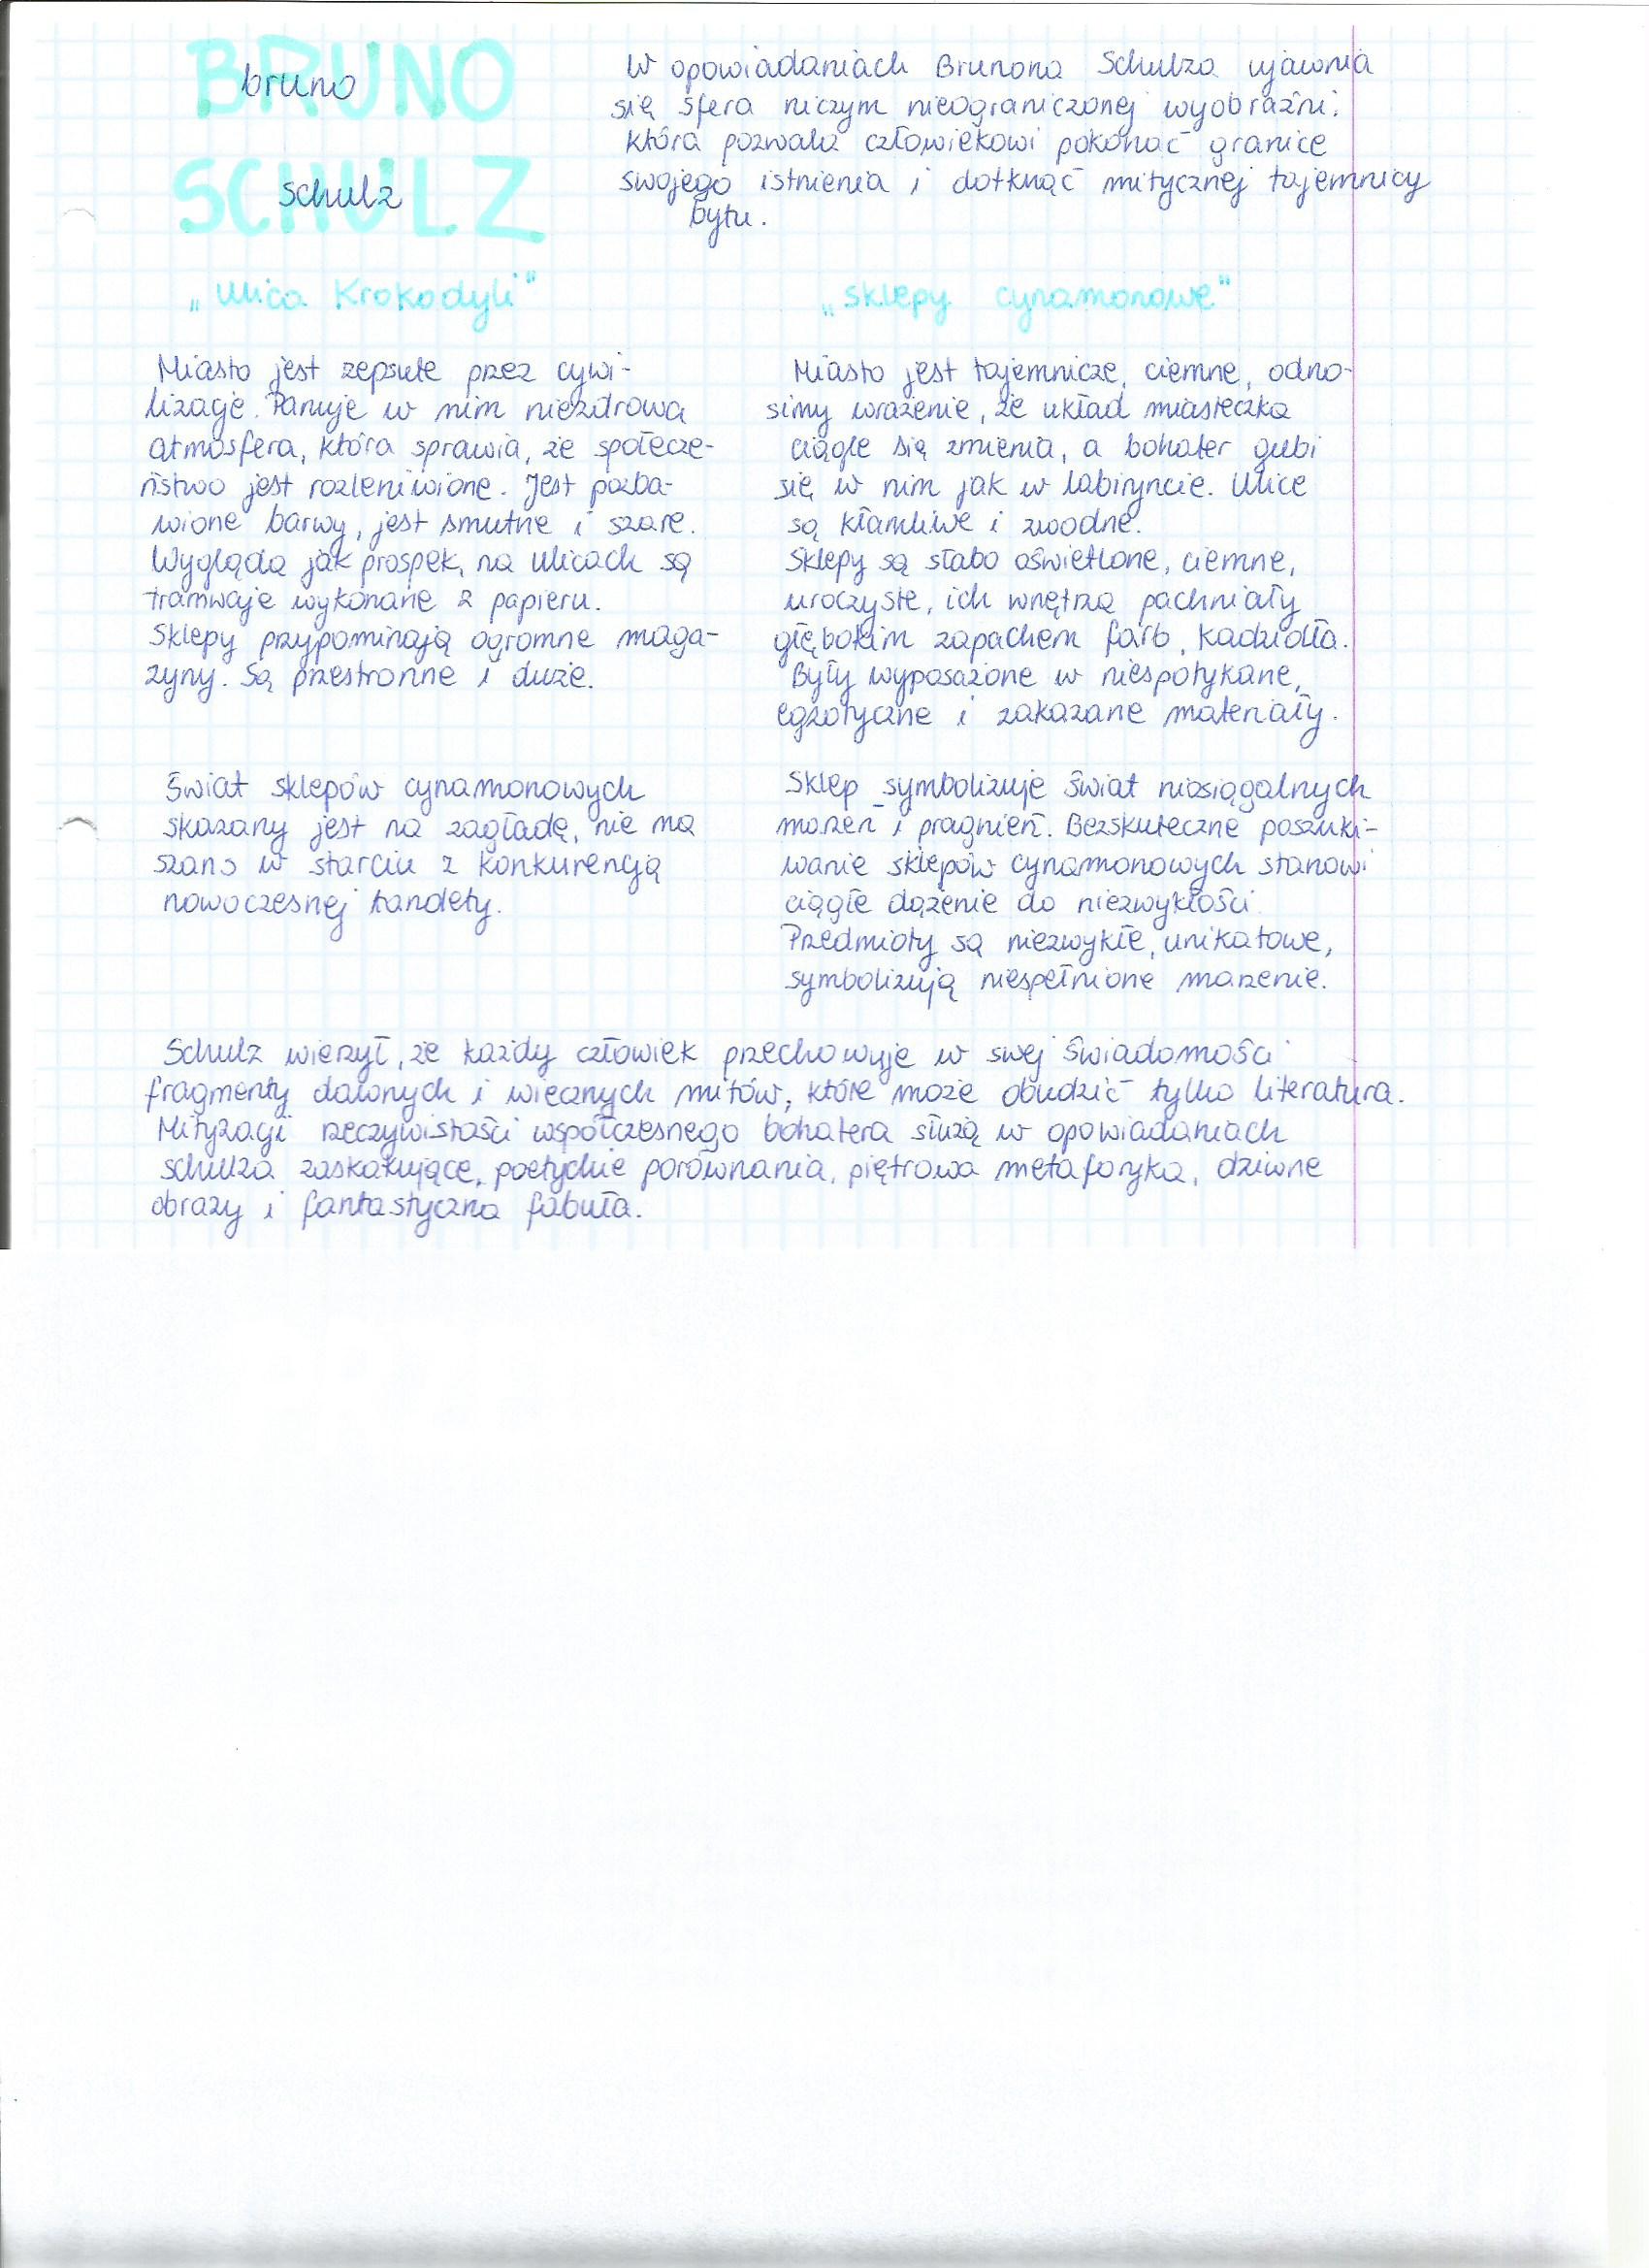 BRUNO
bruno
SCHULZ
schulz
W opowiadaniach Brunona Schulza ujawnia
się sfera niczym nieograniczonej wyobraźni,
która pozwala człowiekowi pokonać granice
swojego istnienia i dotknąć mitycznej tajemnicy
bytu.
„Ulica Krokodyli"
Miasto jest zepsute przez cywi-
lizację. Panuje w nim niezdrowa
atmosfera, która sprawia, że społecze-
ństwo jest rozleniwione. Jest pozba-
wione barwy, jest smutne i szare.
Wygląda jak prospek, na ulicach są
tramwaje wykonane z papieru.
Sklepy przypominają ogromne maga-
zyny. Są przestronne i duże.
Świat sklepów cynamonowych
skazany jest na zagładę, nie ma
szans w starciu z konkurencją
nowoczesnej tandety.
„Sklepy cynamonowe"
Miasto jest tajemnicze, ciemne, odno-
simy wrażenie, że układ miasteczka
ciągle się zmienia, a bohater gubi
się w nim jak w labiryncie. Ulice
są kłamliwe i zwodne.
Sklepy są słabo oświetlone, ciemne,
uroczyste, ich wnętrza pachniały
głębokim zapachem farb, kadzidła.
Były wyposażone w niespotykane,
egzotyczne i zakazane materiały.
Sklep symbolizuje świat nieosiągalnych
marzeń i pragnień. Bezskuteczne poszuki-
wanie sklepów cynamonowych stanowi
ciągłe dążenie do niezwykłości.
Przedmioty są niezwykłe, unikatowe,
symbolizują niespełnione marzenie.
Schulz wierzył, że każdy człowiek przechowuje w swej świadomości
fragmenty dawnych i wiecznych mitów, które może obudzić tylko literatura.
Mityzacji rzeczywistości współczesnego bohatera służą w opowiadaniach
Schulza zaskakujące, poetyckie porównania, piętrowa metaforyka, dziwne
obrazy i fantastyczna fabuła.